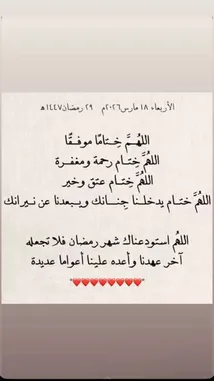 الأربعاء ١٨ مارس٢٠٢٦م ٢٩ رمضان١٤٤٧هـ
اللهُـمَّ خِـتامًا موفـقًا
اللهُمَّ خِتـام رحمة ومغفـرة
اللهُمَّ خِتـام عتق وخير
اللهُمَّ ختـام يدخلـنا جِنـانك ويـبعدنا عن نيرانك
اللهُم استودعناك شهر رمضان فلا تجعله
آخر عهدنا وأعده علينا أعواما عديدة
"❤❤❤❤❤❤❤"